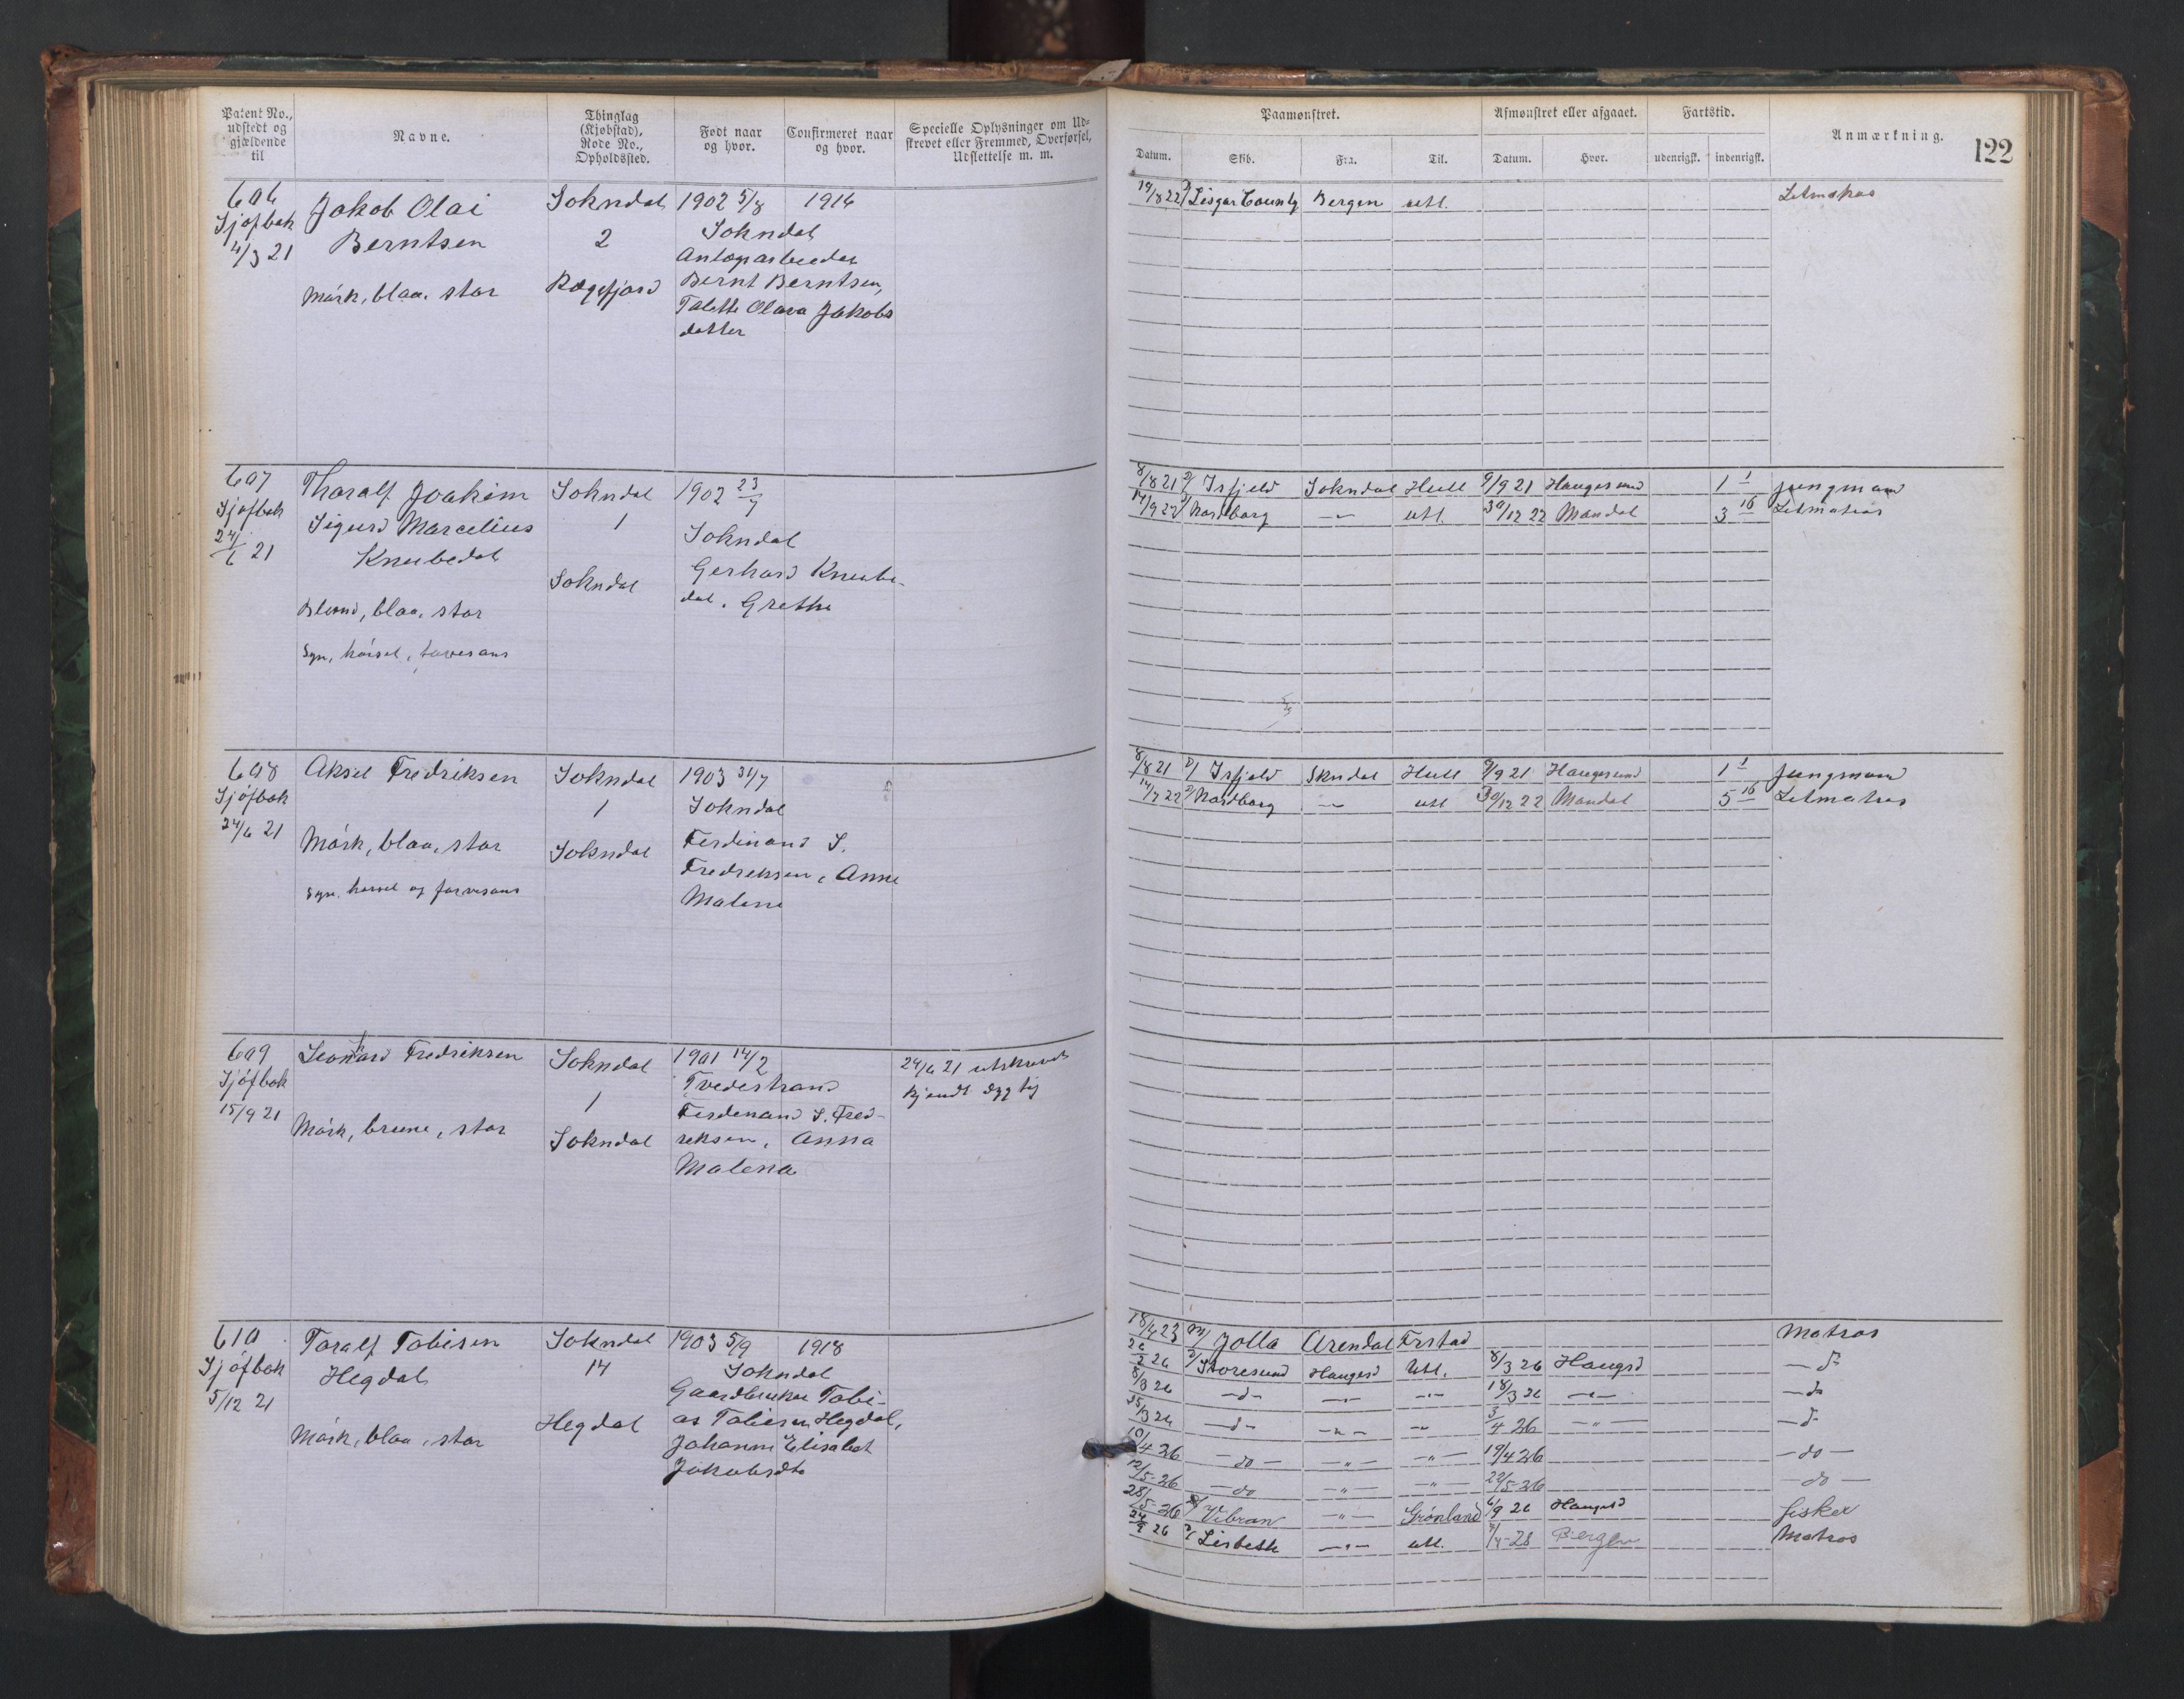 Patent No., udstedt og gjældende til
Navne.
Thinglag (Kjøbstad), Rode No., Opholdssted.
Født naar og hvor.
Confirmeret naar og hvor.
Specielle Oplysninger om Udskrevet eller Fremmed, Overførsel, Udslettelse m. m.
Paamønstret.
Afmønstret eller afgaaet.
Fartstid.
Anmærkning.
122
Datum. Skib. Fra. Til. Datum. Hvor. udenrigsk. indenrigsk.
606 Jakob Olai Sokndal 1902 5/8 1916
Sjøfbok Berntsen 2 Sokndal
4/3 21
Mørk, blaa, stor Rægefjord Bernt Berntsen,
Talette Olava Jakobs
datter
19/8 22 Lisgar County Bergen utl. Letmatros
607 Tharalf Joakim Sokndal 1902 23/7
Sjøfbok Sigurd Marcelius 1 Sokndal
24/6 21 Knubedal
Sokndal Gerhard Knube-
dal. Grethe
Blond, blaa, stor
Syn, hørsel, farvesans
8/8 21 Isfjeld Sokndal Hull 9/9 21 Haugesund 1 1 Jungmand
14/9 22 Nordborg —"— utl. 30/12 22 Mandal 3 16 Letmatros
608 Aksel Fredriksen Sokndal 1903 31/7
Sjøfbok 1 Sokndal
24/6 21
Mørk, blaa, stor Sokndal Ferdinand S.
Fredriksen, Anne
Malene
Syn, hørsel og farvesans
8/8 21 Isfjeld Skndal Hull 9/9 21 Haugesund 1 1 Jungmand
14/7 22 Nordborg —"— utl 30/12 22 Mandal 5 16 Letmatros
609 Leonhard Fredriksen Sokndal 1901 14/2 24/6 21 utskrevet
Sjøfbok 1 Tvedestrand kjendt dygtig
15/9 21 Ferdinand S. Fred-
Mørk, brune, stor Sokndal reksen, Anna
Malena
610 Taralf Tobisen Sokndal 1903 5/9 1918
Sjøfbok Hegdal 14 Sokndal
5/12 21 Gaardbruker Tobi-
Mørk, blaa, stor Hegdal as Tobiesen Hegdal,
Johanne Elisabet
Jakobsdtr
18/4 23 Jolla Arendal Frstad Matros
26/2 26 Storesund Haugsd Utl. 8/3 26 Haugsd —d—
8/3 26 —d— —"— —"— 18/3 26 —"— —d—
25/3 26 —d— —"— —"— 3/4 26 —"— —d—
10/4 26 —do— —"— —"— 19/4 26 —do—
12/5-26 —do —"— —"— 22/5-26 —do—
28/5-26 Vibran —"— Grønland 6/9 26 Haugsd fisker
24/9 26 Lisbeth —"— utl. /4-28 Bergen Matros